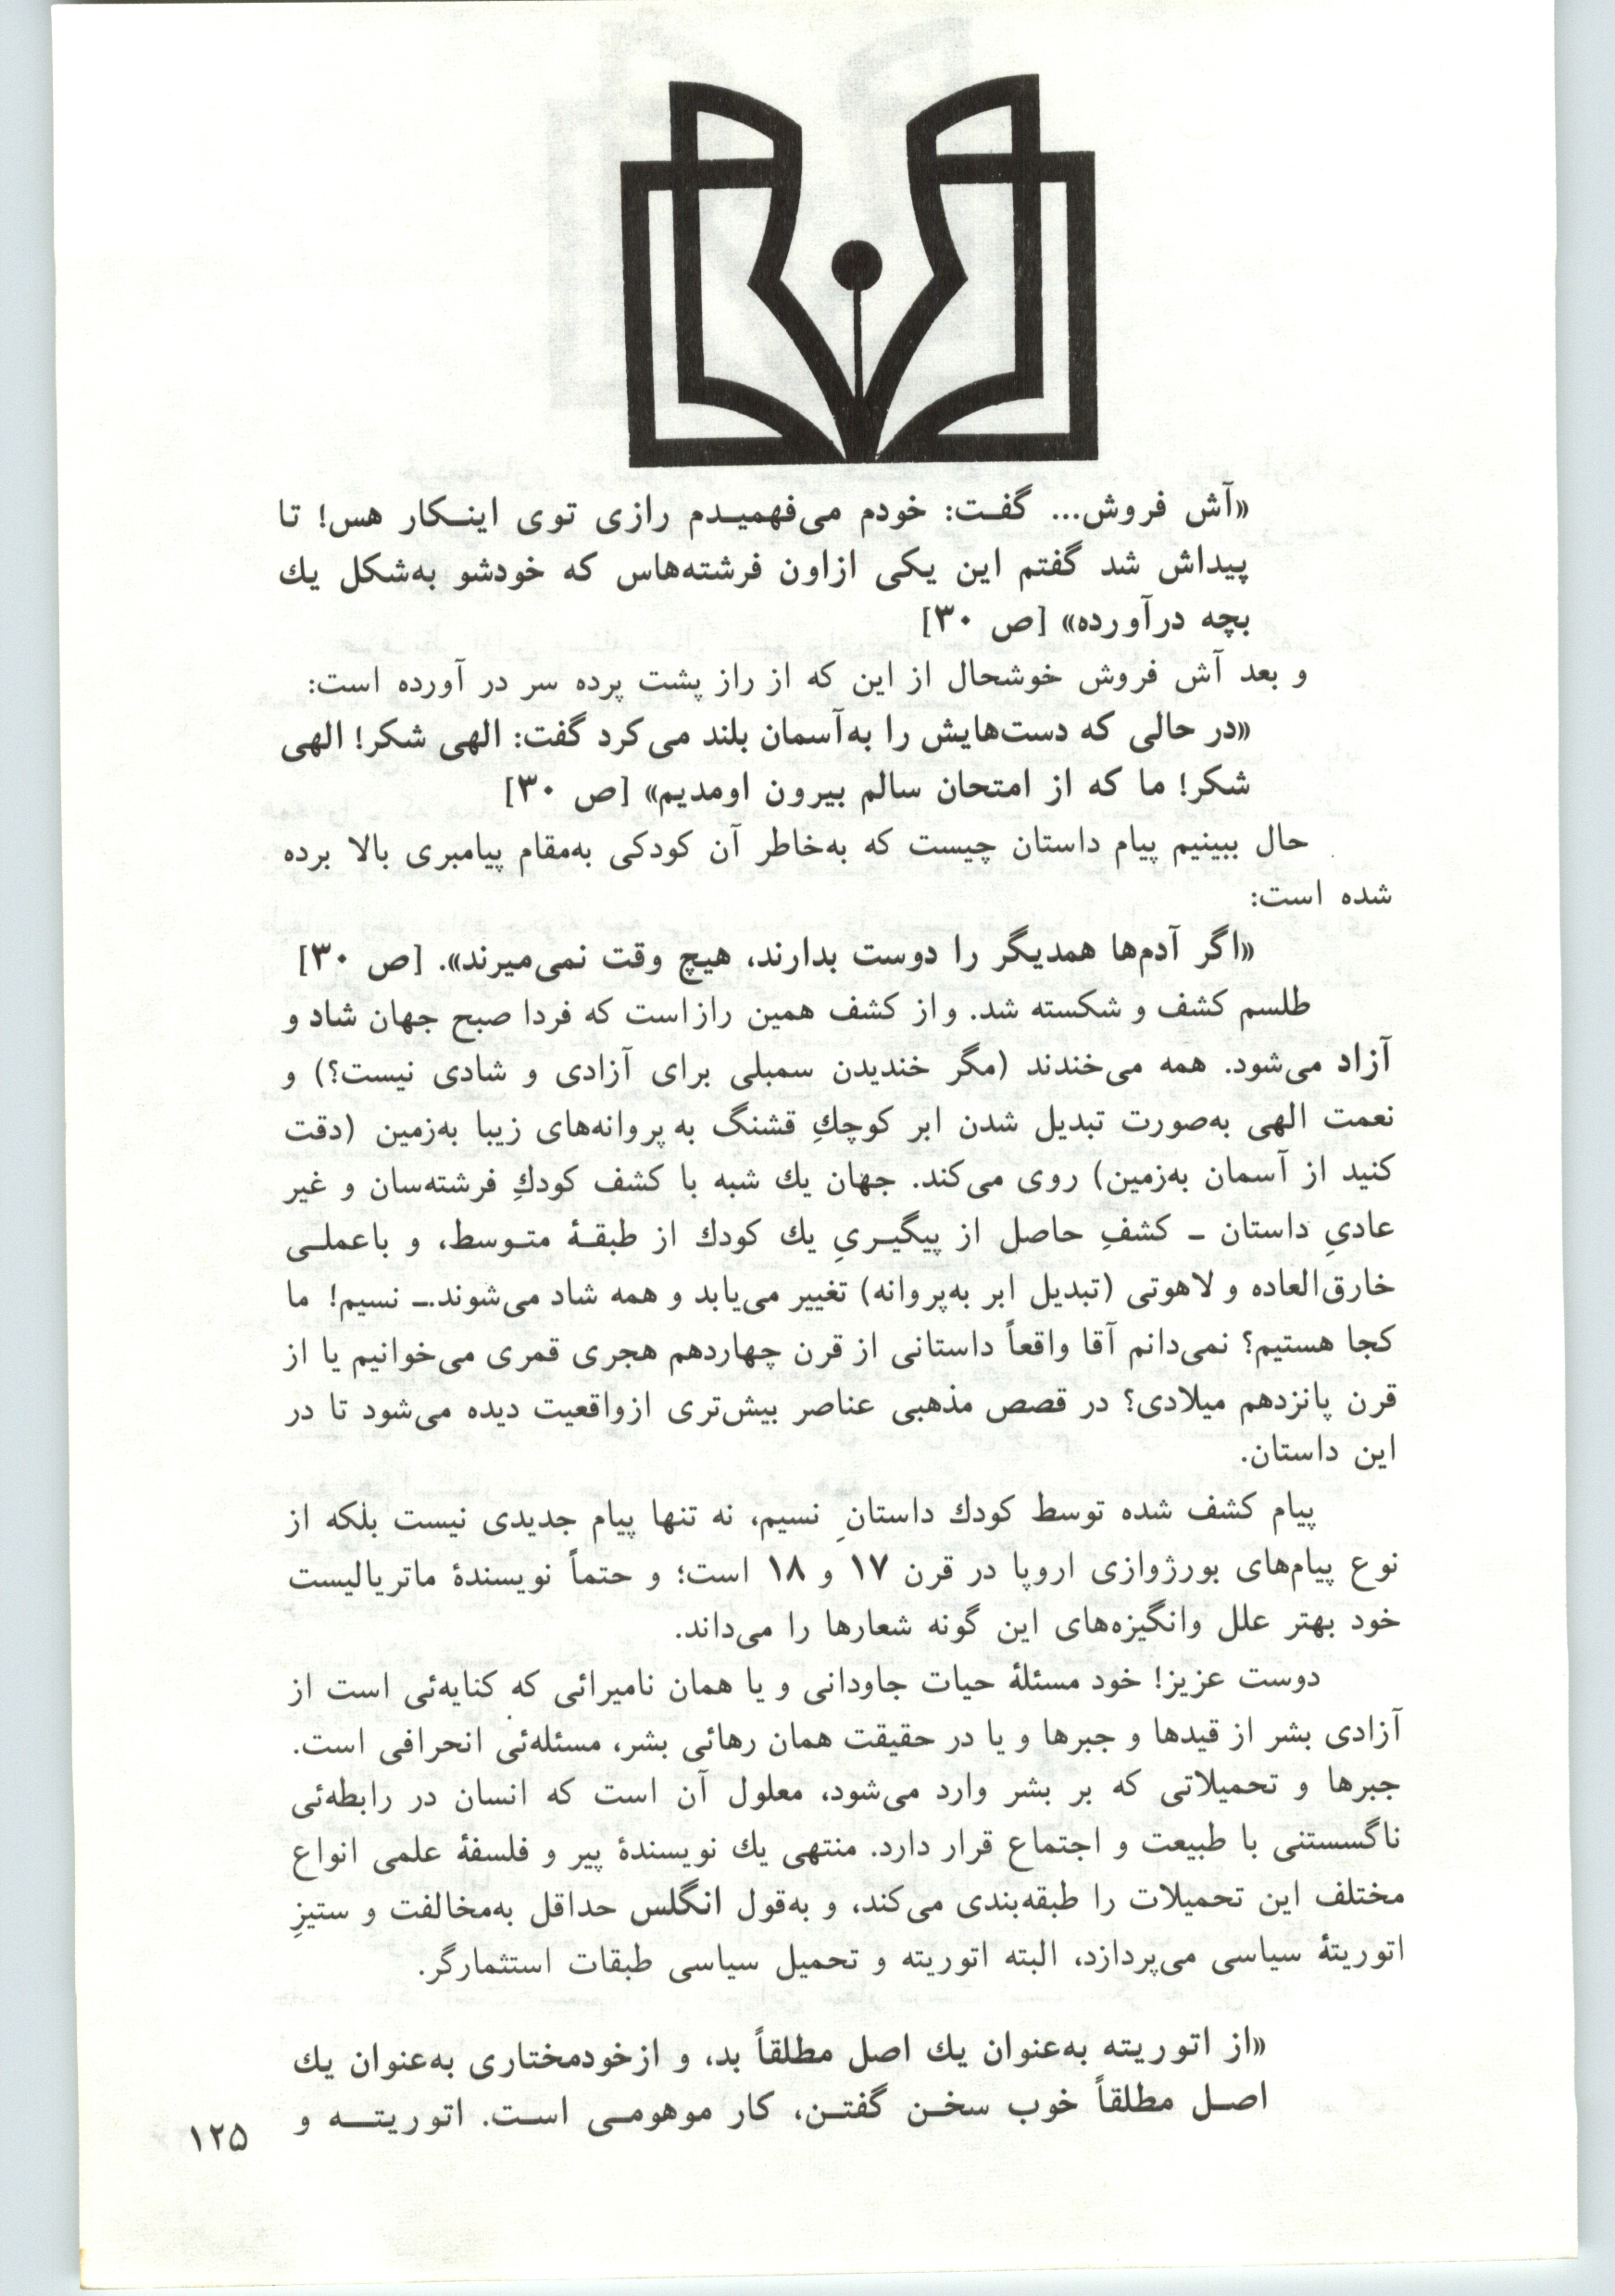 «آش فروش... گفت: خودم می‌فهمیدم رازی توی اینکار هس! تا
پیداش شد گفتم این یکی ازاون فرشته‌هاس که خودشو به‌شکل یك
بچه درآورده» [ص ۳۰]
و بعد آش فروش خوشحال از این که از راز پشت پرده سر در آورده است:
«در حالی که دست‌هایش را به‌آسمان بلند می‌کرد گفت: الهی شکر! الهی
شکر! ما که از امتحان سالم بیرون اومدیم» [ص ۳۰]
حال ببینیم پیام داستان چیست که به‌خاطر آن کودکی به‌مقام پیامبری بالا برده
شده است:
«اگر آدم‌ها همدیگر را دوست بدارند، هیچ وقت نمی‌میرند». [ص ۳۰]
طلسم کشف و شکسته شد. و از کشف همین رازاست که فردا صبح جهان شاد و
آزاد می‌شود. همه می‌خندند (مگر خندیدن سمبلی برای آزادی و شادی نیست؟) و
نعمت الهی به‌صورت تبدیل شدن ابر کوچكِ قشنگ به پروانه‌های زیبا به‌زمین (دقت
کنید از آسمان به‌زمین) روی می‌کند. جهان یك شبه با کشف کودكِ فرشته‌سان و غیر
عادیِ داستان ـ کشفِ حاصل از پیگیریِ یك کودك از طبقهٔ متوسط، و باعملی
خارق‌العاده و لاهوتی (تبدیل ابر به‌پروانه) تغییر می‌یابد و همه شاد می‌شوند.ـ نسیم! ما
کجا هستیم؟ نمی‌دانم آقا واقعاً داستانی از قرن چهاردهم هجری قمری می‌خوانیم یا از
قرن پانزدهم میلادی؟ در قصص مذهبی عناصر بیش‌تری ازواقعیت دیده می‌شود تا در
این داستان.
پیام کشف شده توسط کودك داستانِ نسیم، نه تنها پیام جدیدی نیست بلکه از
نوع پیام‌های بورژوازی اروپا در قرن ۱۷ و ۱۸ است؛ و حتماً نویسندهٔ ماتریالیست
خود بهتر علل وانگیزه‌های این گونه شعارها را می‌داند.
دوست عزیز! خود مسئلهٔ حیات جاودانی و یا همان نامیرائی که کنایه‌ئی است از
آزادی بشر از قیدها و جبرها و یا در حقیقت همان رهائی بشر، مسئله‌ئی انحرافی است.
جبرها و تحمیلاتی که بر بشر وارد می‌شود، معلول آن است که انسان در رابطه‌ئی
ناگسستنی با طبیعت و اجتماع قرار دارد. منتهی یك نویسندهٔ پیر و فلسفهٔ علمی انواع
مختلف این تحمیلات را طبقه‌بندی می‌کند، و به‌قول انگلس حداقل به‌مخالفت و ستیزِ
اتوریتهٔ سیاسی می‌پردازد، البته اتوریته و تحمیل سیاسی طبقات استثمارگر.
«از اتوریته به‌عنوان یك اصل مطلقاً بد، و ازخودمختاری به‌عنوان یك
اصل مطلقاً خوب سخن گفتن، کار موهومی است. اتوریته و
۱۲۵